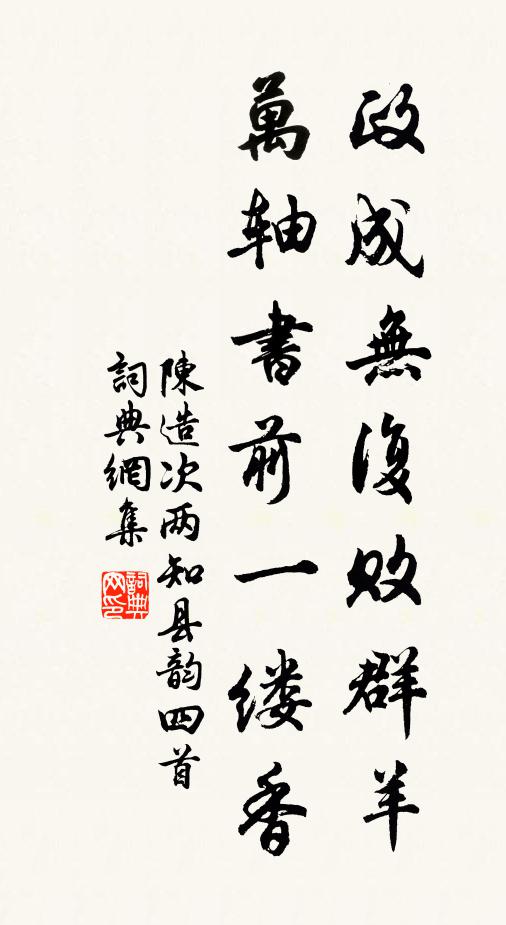 政成無復敗群羊
萬轴書前一缕香
陳造次两知县韵四首
詞典網集
詞典
网印